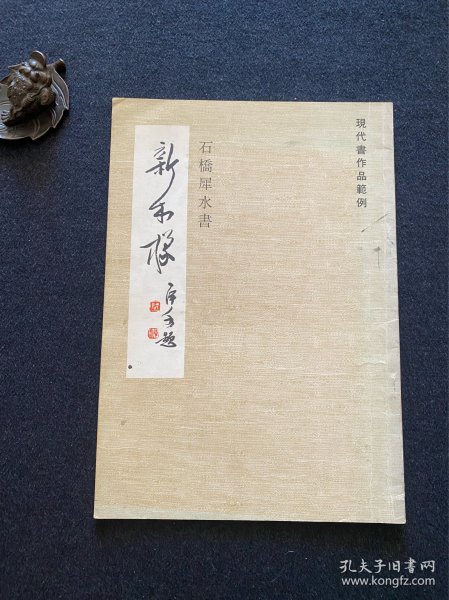 現代書作品範例
石橋犀水書
新和様
犀水題
孔夫子旧书网
www.kongfz.com